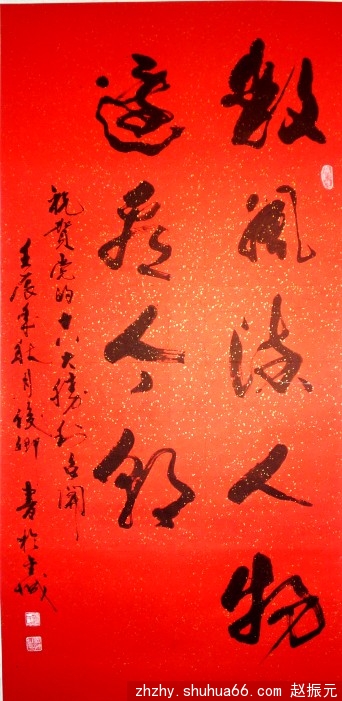 数風流人物
還看今朝
祝賀党的十八大勝利召開
壬辰年秋月俊卿 書於
zhzhy.shuhua66.com 赵振元